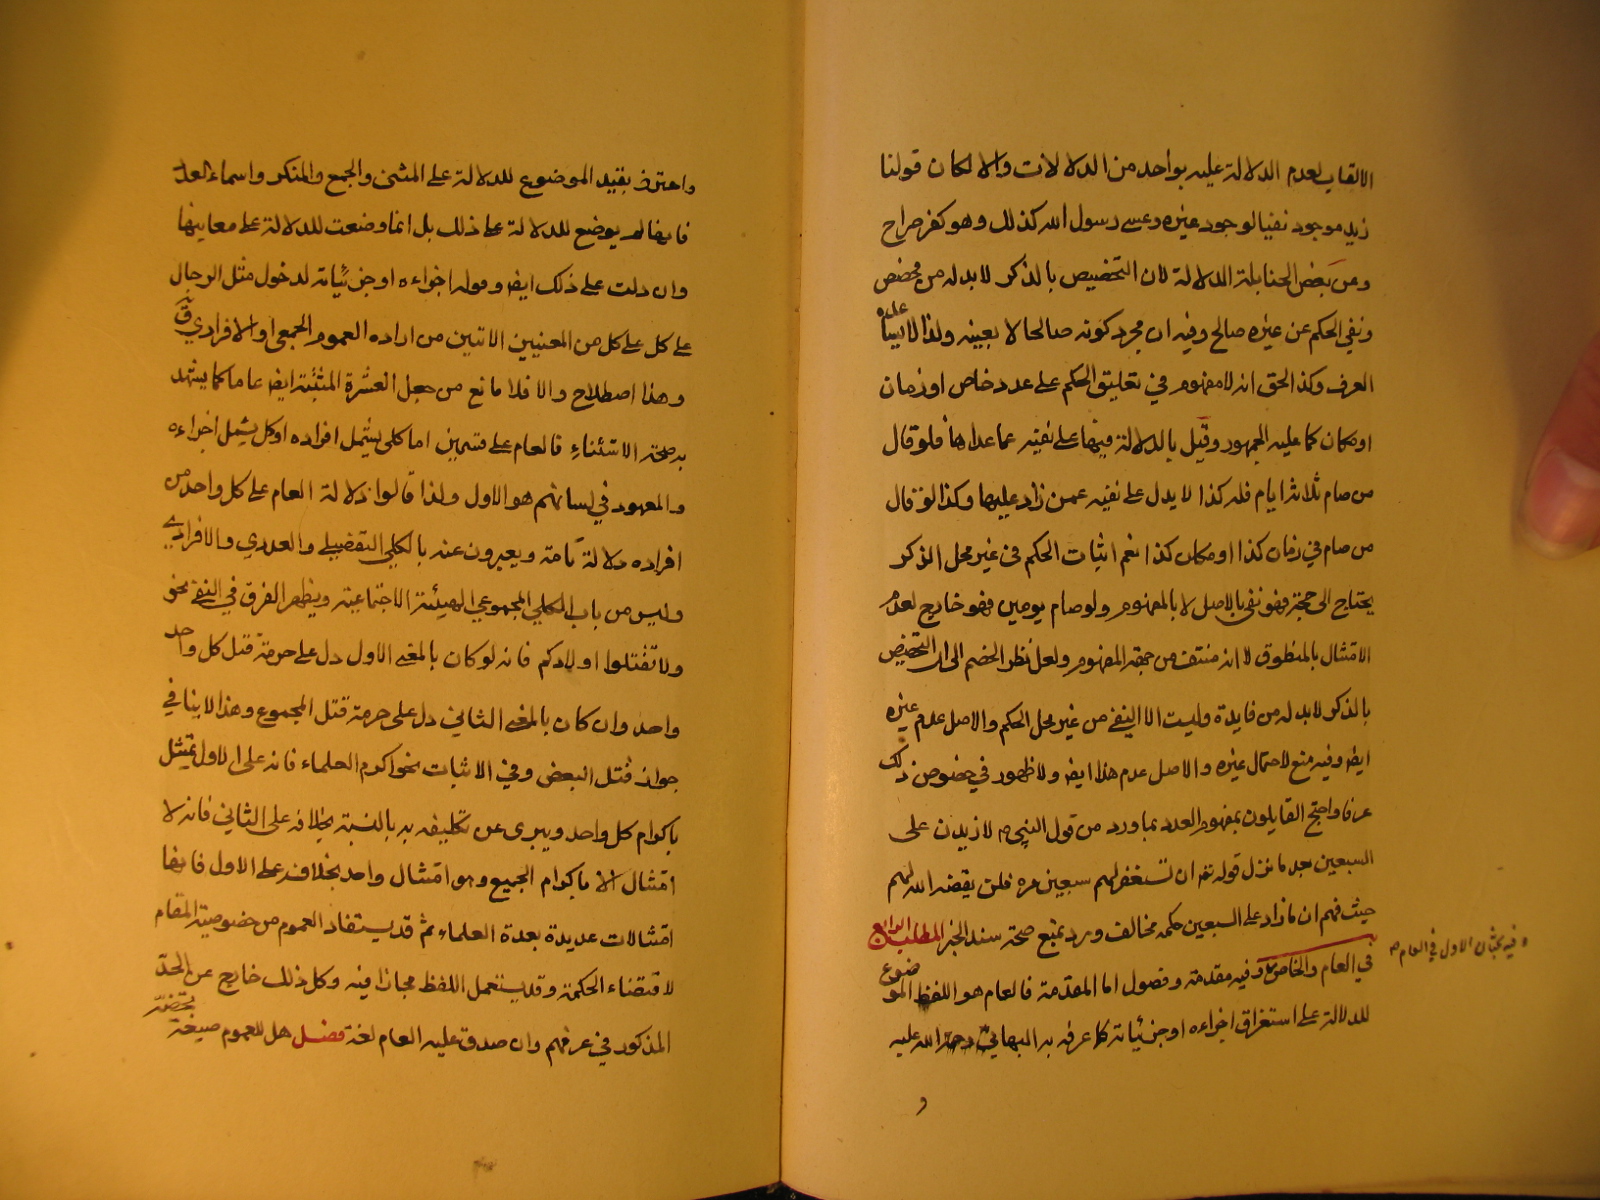 الالقاب لعدم الدلالة عليه بواحد من الدلالات والا لكان قولنا
زيد موجود نفيا لوجود غيره وعيسى رسول الله كذلك وهو كفر صراح
وعن بعض الحنابلة الدلالة لان التخصيص بالذكر لابد له من مخصص
ونفي الحكم عن غيره صالح وفيه ان مجرد كونه صالحا لا يعينه ولذا لا يساعده
العرف وكذا الحق انه لا مفهوم في تعليق الحكم على عدد خاص او زمان
او مكان كما عليه الجمهور وقيل بالدلالة فيها على نفيه عما عداها فلو قال
من صام ثلاثة ايام فله كذا لا يدل على نفيه عمن زاد عليها وكذا لو قال
من صام في زمان كذا او مكان كذا نعم اثبات الحكم في غير محل الذكر
يحتاج الى حجة فهو نفي بالاصل لا بالمفهوم ولو صام يومين فهو خارج لعدم
الامتثال بالمنطوق لا انه منتف من جهة المفهوم ولعل نظر الخصم الى ان التخصيص
بالذكر لابد له من فايدة وليست الا النفي من غير محل الحكم والاصل عدم غيره
ايضا وفيه منع لاحتمال غيره والاصل عدم هذا ايضا ولا ظهور في خصوص ذلك
عرفا واحتج القايلون بمفهوم العدد بما ورد من قول النبي ص لازيدن على
السبعين بعد ما نزل قوله تعه ان تستغفر لهم سبعين مرة فلن يغفر الله لهم
حيث فهم ان ما زاد على السبعين حكمه مخالف ورد بمنع صحة سند الخبر المطلب الرابع
في العام والخاص وفيه مقدمة وفصول اما المقدمة فالعام هو اللفظ الموضوع
للدلالة على استغراق اجزاءه او جزئياته كما عرفه به البهائي رحمة الله عليه
فيه بحثان الاول في العام
و
واحترز بقيد الموضوع للدلالة على المثنى والجمع والمنكر واسماء العدد
فانها لم يوضع للدلالة على ذلك بل انما وضعت للدلالة على معانيها
وان دلت على ذلك ايضا وقوله اجزاءه او جزئياته لدخول مثل الرجال
على كل على كل من المعنيين الاتيين من اراده العموم الجمعي او الافرادي
وهذا اصطلاح والا فلا مانع من جعل العشرة المثبتة ايضا عاما كما يشهد
به صحة الاستثناء فالعام على قسمين اما كلي يشمل افراده او كل يشمل اجزاءه
والمعهود في لسانهم هو الاول ولذا قالوا دلالة العام على كل واحد من
افراده دلالة تامة ويعبرون عنه بالكلي التفصيلي والعددي والافرادي
وليس من باب الكلي المجموعي الهيئة الاجتماعية ويظهر الفرق في النفي نحو
ولا تقتلوا اولادكم فانه لو كان بالمعنى الاول دل على حرمة قتل كل واحد
واحد وان كان بالمعنى الثاني دل على حرمة قتل المجموع وهذا لا ينافي
جواز قتل البعض وفي الاثبات نحو اكرم العلماء فانه على الاول يمتثل
باكرام كل واحد ويبرى عن تكليفه به بالنسبة بخلافه على الثاني فانه لا
امتثال الا باكرام الجميع وهو امتثال واحد بخلافه على الاول فانها
امتثالات عديدة بعدة العلماء ثم قد يستفاد العموم من خصوصية المقام
لاقتضاء الحكمة وقد يستعمل اللفظ مجازا فيه وكل ذلك خارج عن الحد
المذكور في عرفهم وان صدق عليه العام لغة فصل هل للعموم صيغة تخصه